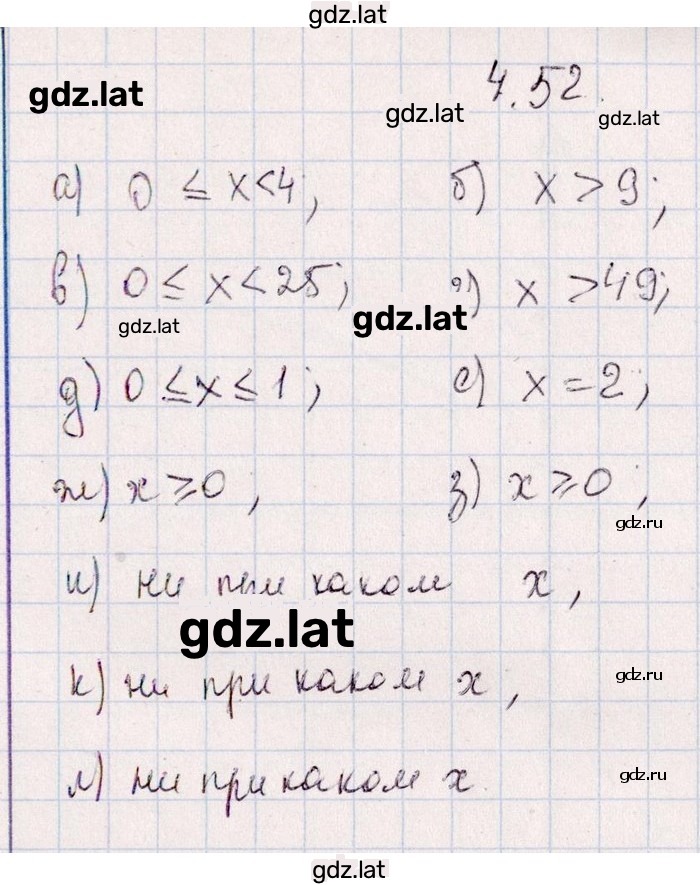 gdz.lat
gdz.lat gdz.lat 4.52. gdz.lat
а) 0 ≤ x<4; б) x > 9;
в) 0 ≤ x < 25; г) x > 49;
gdz.lat gdz.lat
д) 0 ≤ x ≤ 1; е) x = 2;
ж) x ≥ 0, з) x ≥ 0,
gdz.ru
и) ни при каком x,
gdz.lat
к) ни при каком x, gdz.ru
л) ни при каком x. gdz.ru
gdz.lat